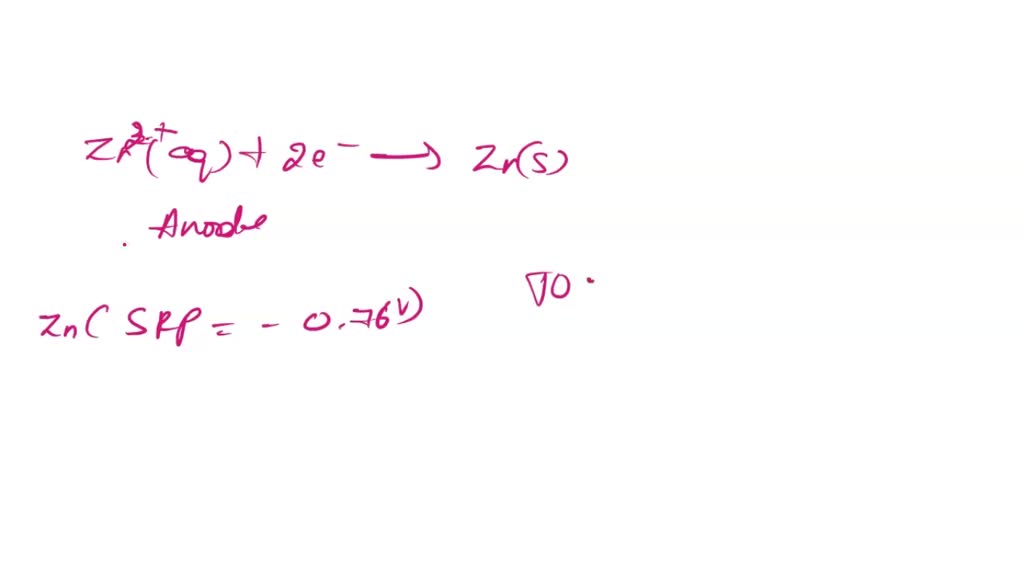 Zn²⁺(aq) + 2e⁻ → Zn(s)
Anode
Zn( SRP = - 0.76V)